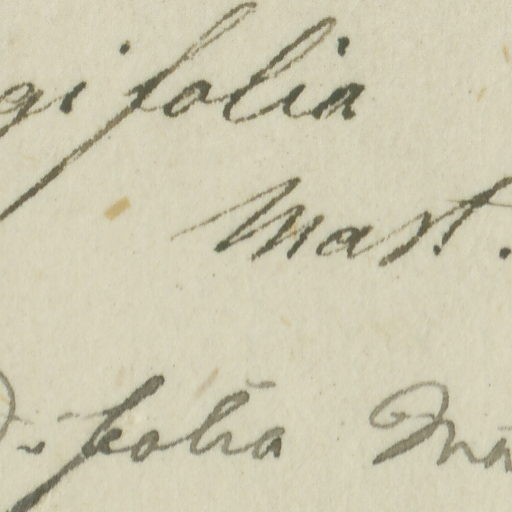 gifolia
Mast.
ifolia Ma